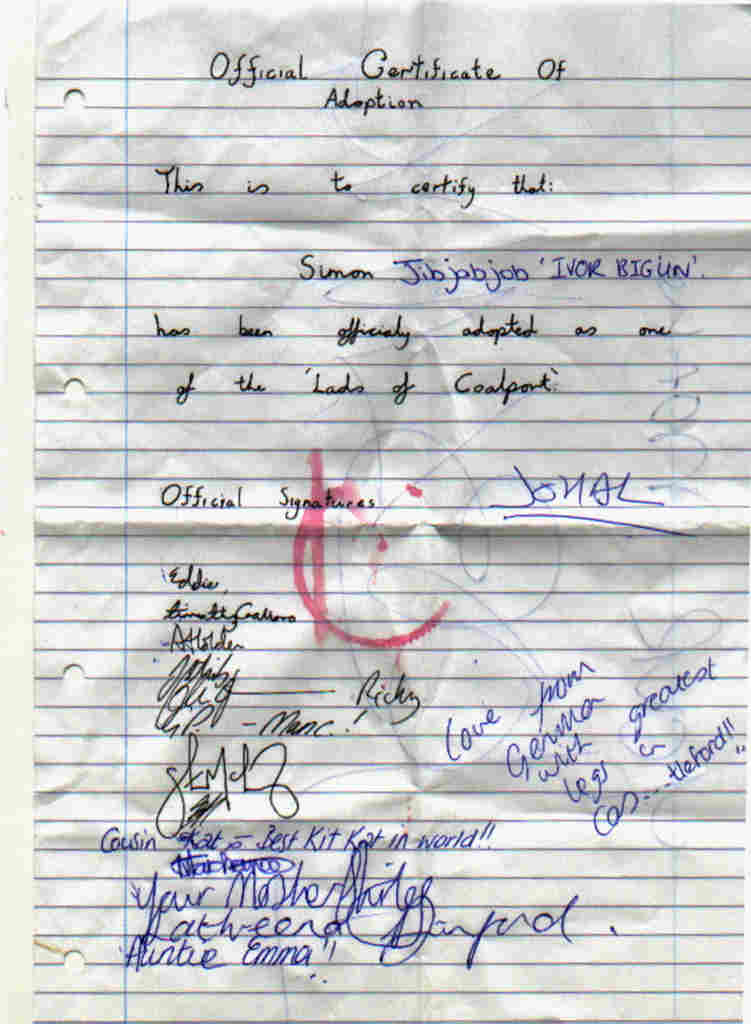 Official Certificate Of
Adoption
This is to certify that:
Simon Jibjabjob 'IVOR BIGUN'.
has been officialy adopted as one
of the 'Lads of Coalport'.
Official Signatures
Eddie,
AHolden
Ricky
- Manc.!
Love from
German
with greatest
legs in
Cas....tleford!!
Cousin Kat - Best Kit Kat in world!!
Your Mother Shirley
Auntie Emma!!